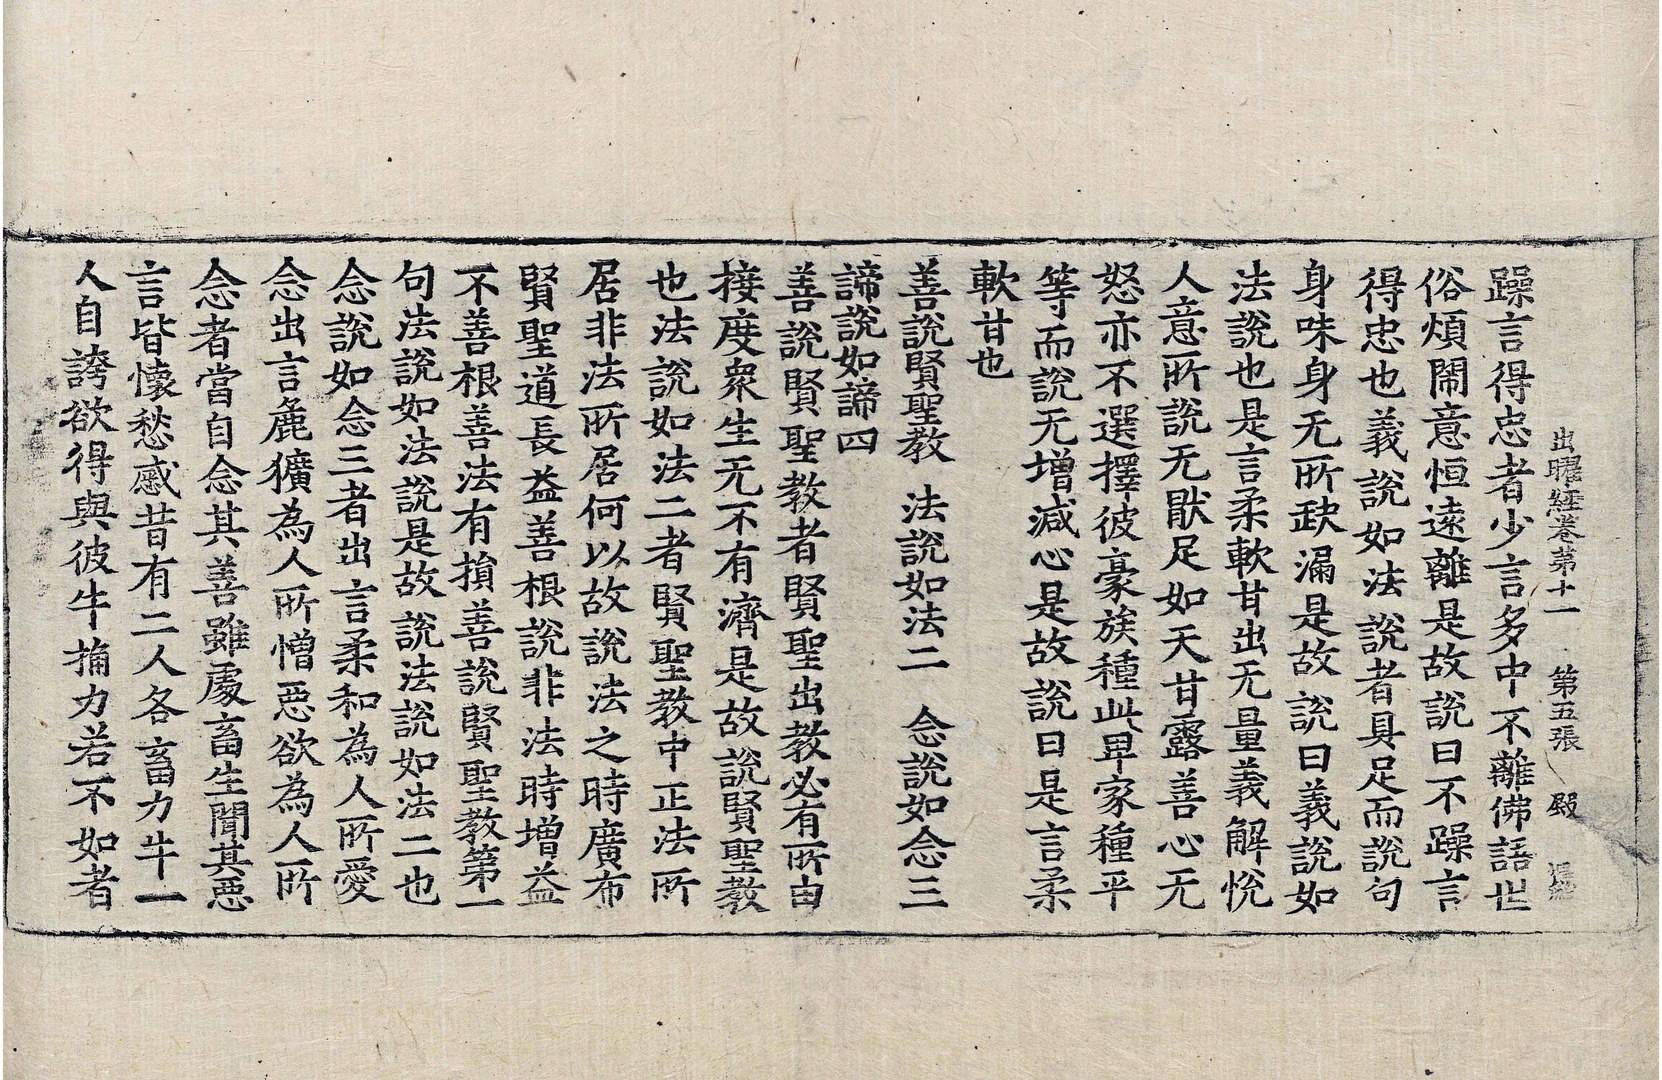 出曜經卷第十一　第五張　殿
躁言得忠者少言多中不離佛語世
俗煩鬧意恒遠離是故說曰不躁言
得忠也義說如法說者具足而說句
身味身无所缺漏是故說曰義說如
法說也是言柔軟甘出无量義解悅
人意所說无厭足如天甘露善心无
怒亦不選擇彼豪族種此卑家種平
等而說无增減心是故說曰是言柔
軟甘也
善說賢聖教　法說如法二　念說如念三
諦說如諦四
善說賢聖教者賢聖出教必有所由
接度衆生无不有濟是故說賢聖教
也法說如法二者賢聖教中正法所
居非法所居何以故說法之時廣布
賢聖道長益善根說非法時增益
不善根善法有損善說賢聖教第一
句法說如法說是故說法說如法二也
念說如念三者出言柔和為人所愛
念出言麁獷為人所憎惡欲為人所
念者當自念其善雖處畜生聞其惡
言皆懷愁慼昔有二人各畜力牛一
人自誇欲得與彼牛捔力若不如者